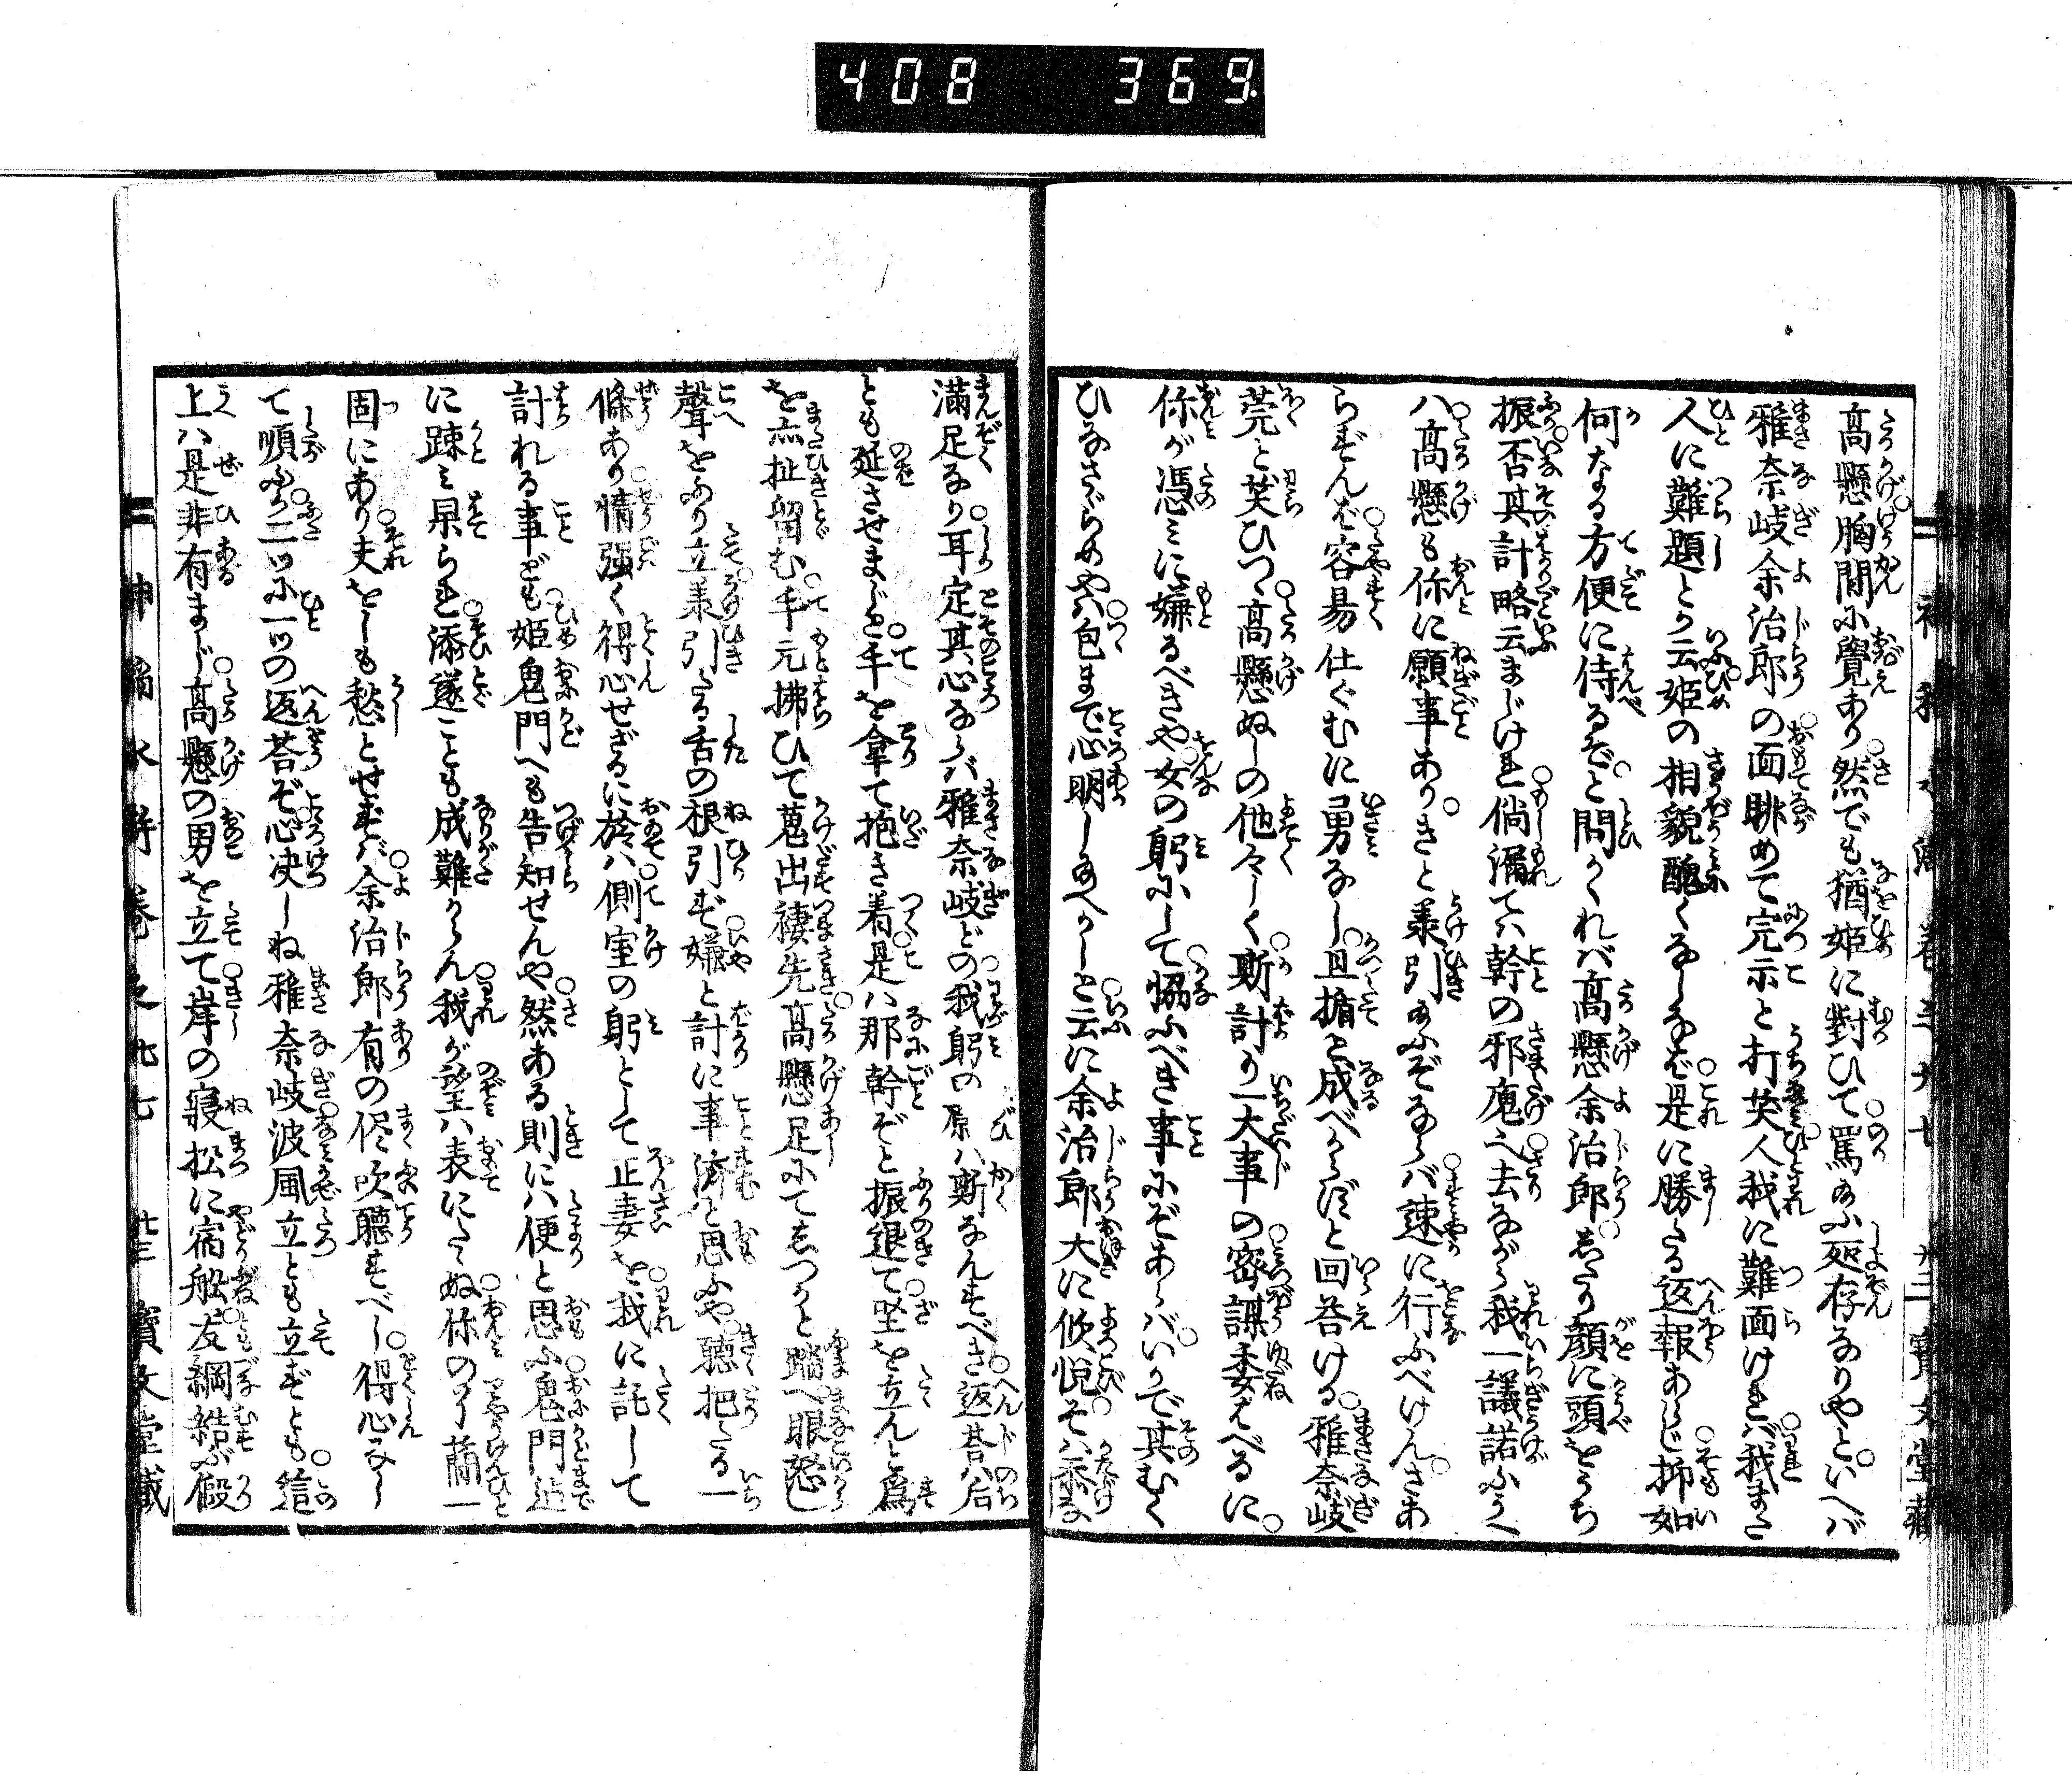 408 369.
高懸胸間に覺あり然でも猶姫に對ひて罵給ふ所存なりやといへバ
雅奈岐余治郎の面眺めて完示と打笑人我に難面けれバ我また
人に難題とり云姫の相貌醜くなしなバ是に勝たる返報あらじ抑如
何なる方便に侍るぞと問かくれバ高懸余治郎したり顔に頭をうち
振否其計略云まじけれ倘漏てハ幹の邪魔之去ながら我一議諾ふか
ハ高懸も你に願事ありきと承引給ふぞならバ速に行ふべけんさあ
らずんバ容易仕ぐむに勇なし且揗と成べからずと回荅ける雅奈岐
莞と笑ひつゝ高懸ぬしの他々しく斯計り一大事の密謀委ねべるに
你が憑ミに嫌るべきや女の躬にして恊ふべき事にぞあらバいかで其むく
ひなさゞらめや包まで心明し給へかしと云に余治郎大に倐悦そハ忝な
満足なり耳定其心ならバ雅奈岐どの我躬の願ハ斯なんすべき返荅ハ后
とも延させまじと手を拿て抱き着是ハ那幹ぞと振退て坐を立んと為
を亦扯留む手元拂ひて蒐出褄先高懸足にてしつかと踏へ眼怒し
聲をふり立承引たる舌の根引ず嫌と計に事済と思ふや聽把たる一
條あり情強く得心せざるに於ハ側室の躬として正妻を我に託して
計れる事ども姫鬼門へも告知せんや然ある則にハ便と思ふ鬼門迄
に踈ミ杲られ添遂ことも成難からん我が望ハ表にたゝぬ你の了簡一
固にあり夫をしも愁とせずバ余治郎有の侭吹聽すべし得心なし
て順ふか二ツに一ツの返荅ぞ心决しね雅奈岐波風立とも立ずとも這
上ハ是非有まじ高懸の男を立て岸の寢松に宿舩友綱結ぶ假
寳文堂藏